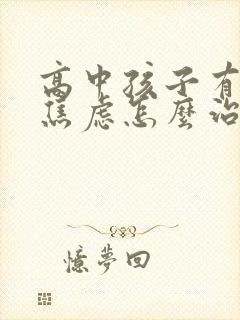 高中孩子有
焦虑怎麼治
憶夢回